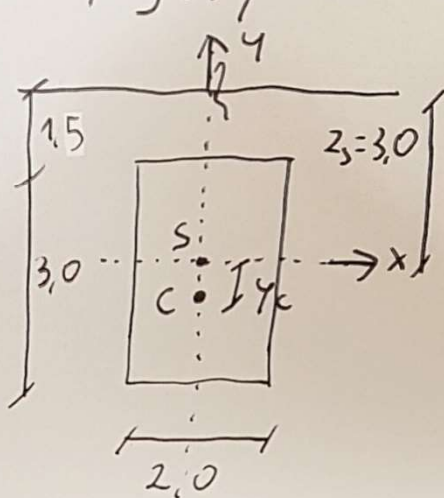 y
1,5
z_s=3,0
S
x
3,0
C
y_c
2,0